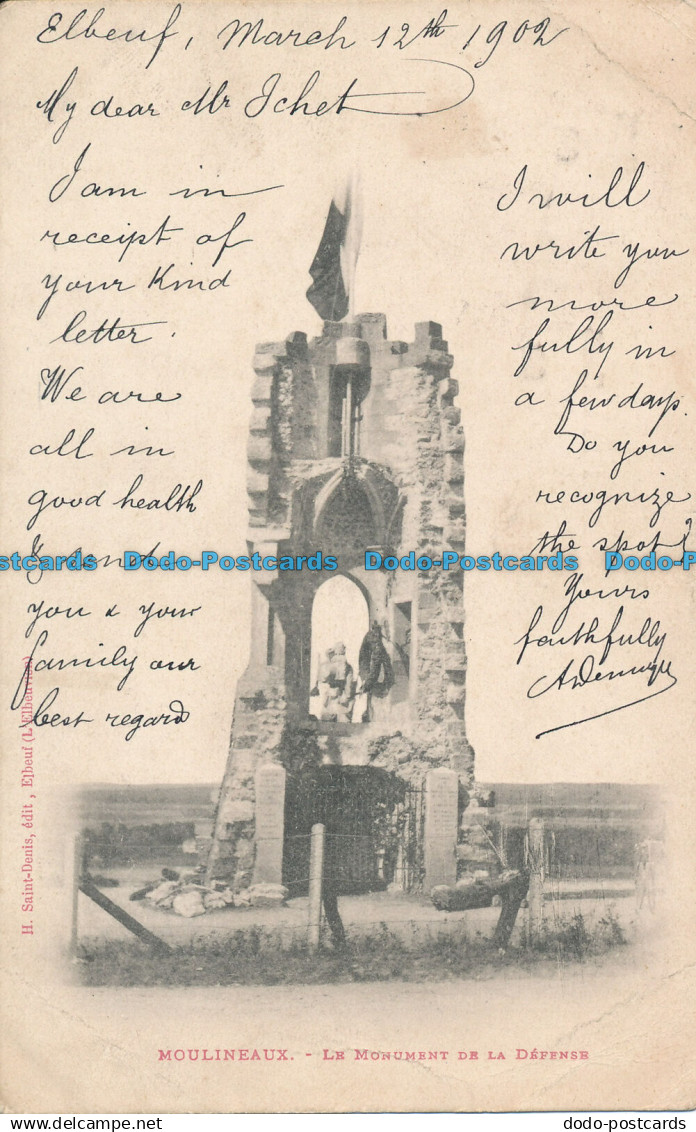 Elbeuf, March 12th 1902
My dear Mr Ichet
I am in
receipt of
your Kind
letter.
We are
all in
good health
& send
you & your
family our
best regard
I will
write you
more
fully in
a few days.
Do you
recognize
the spot?
Yours
faithfully
Dodo-Postcards Dodo-Postcards Dodo-Postcards
H. Saint-Denis, édit, Elbeuf (L'Elbeuvien)
MOULINEAUX. - LE MONUMENT DE LA DÉFENSE
dodo-postcards